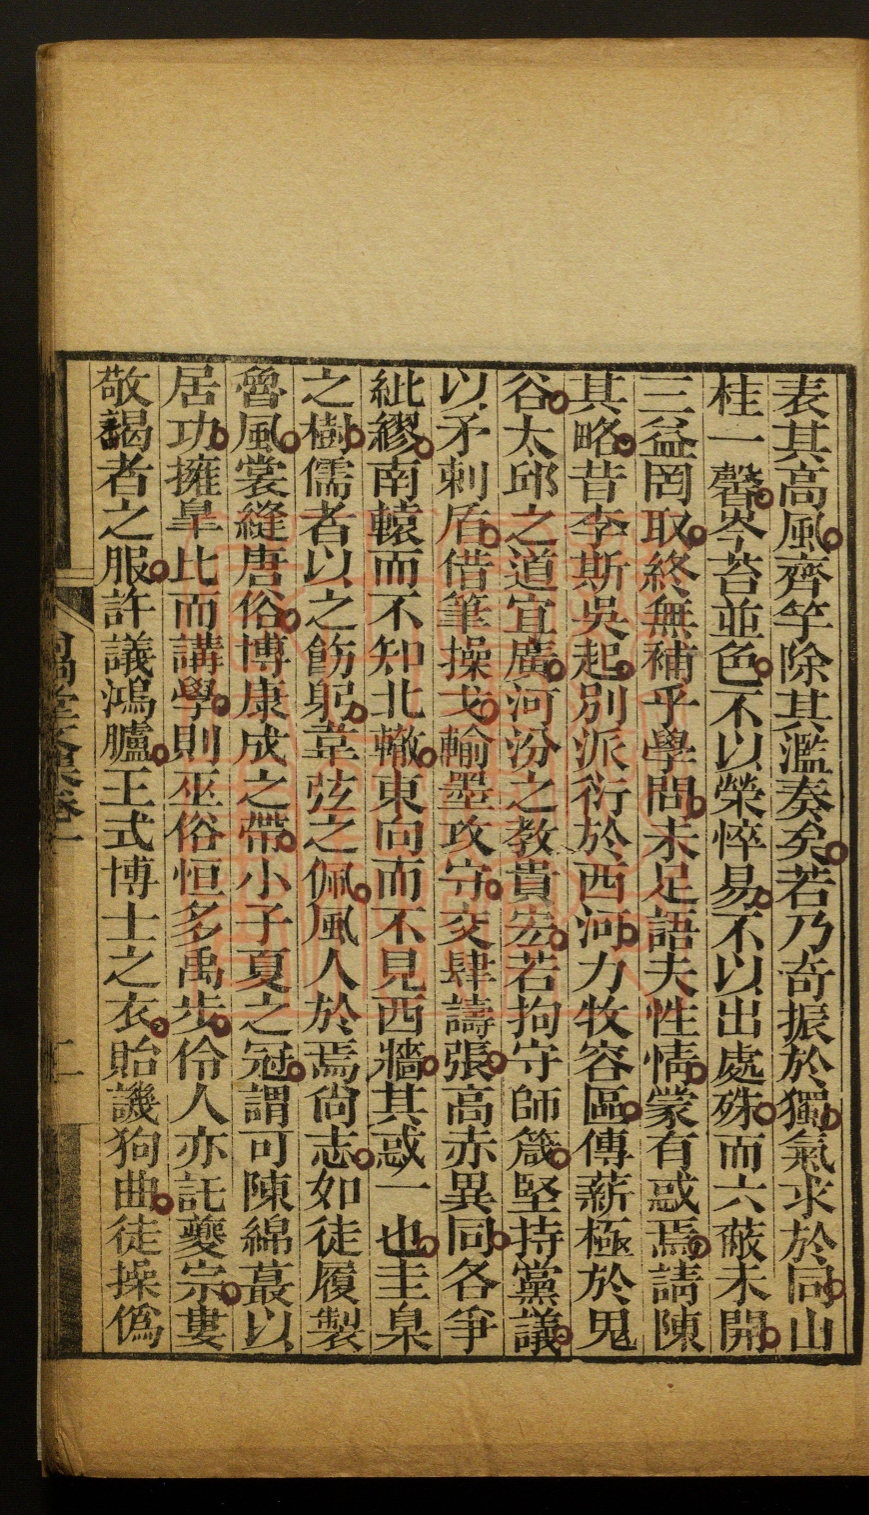 表其高風齊竽除其濫奏矣若乃奇振於獨氣求於同山
桂一馨岑苔並色不以榮悴易不以出處殊而六蔽未開
三益罔取終無補乎學問未足語夫性情蒙有惑焉請陳
其略昔李斯吳起別派衍於西河力牧容區傳薪極於鬼
谷太邱之道宜廣河汾之教貴宏若拘守師箴堅持黨議
以矛刺盾借筆操戈輸墨攻守交肆譸張高赤異同各爭
紕繆南轅而不知北轍東向而不見西牆其惑一也圭臬
之樹儒者以之飭躬韋弦之佩風人於焉尙志如徒履製
魯風裳縫唐俗博康成之帶小子夏之冠謂可陳綿蕞以
居功擁皐比而講學則巫俗恒多禹步伶人亦託夔宗婁
敬謁者之服許議鴻臚王式博士之衣貽譏狗曲徒操僞
堂文集卷一
二